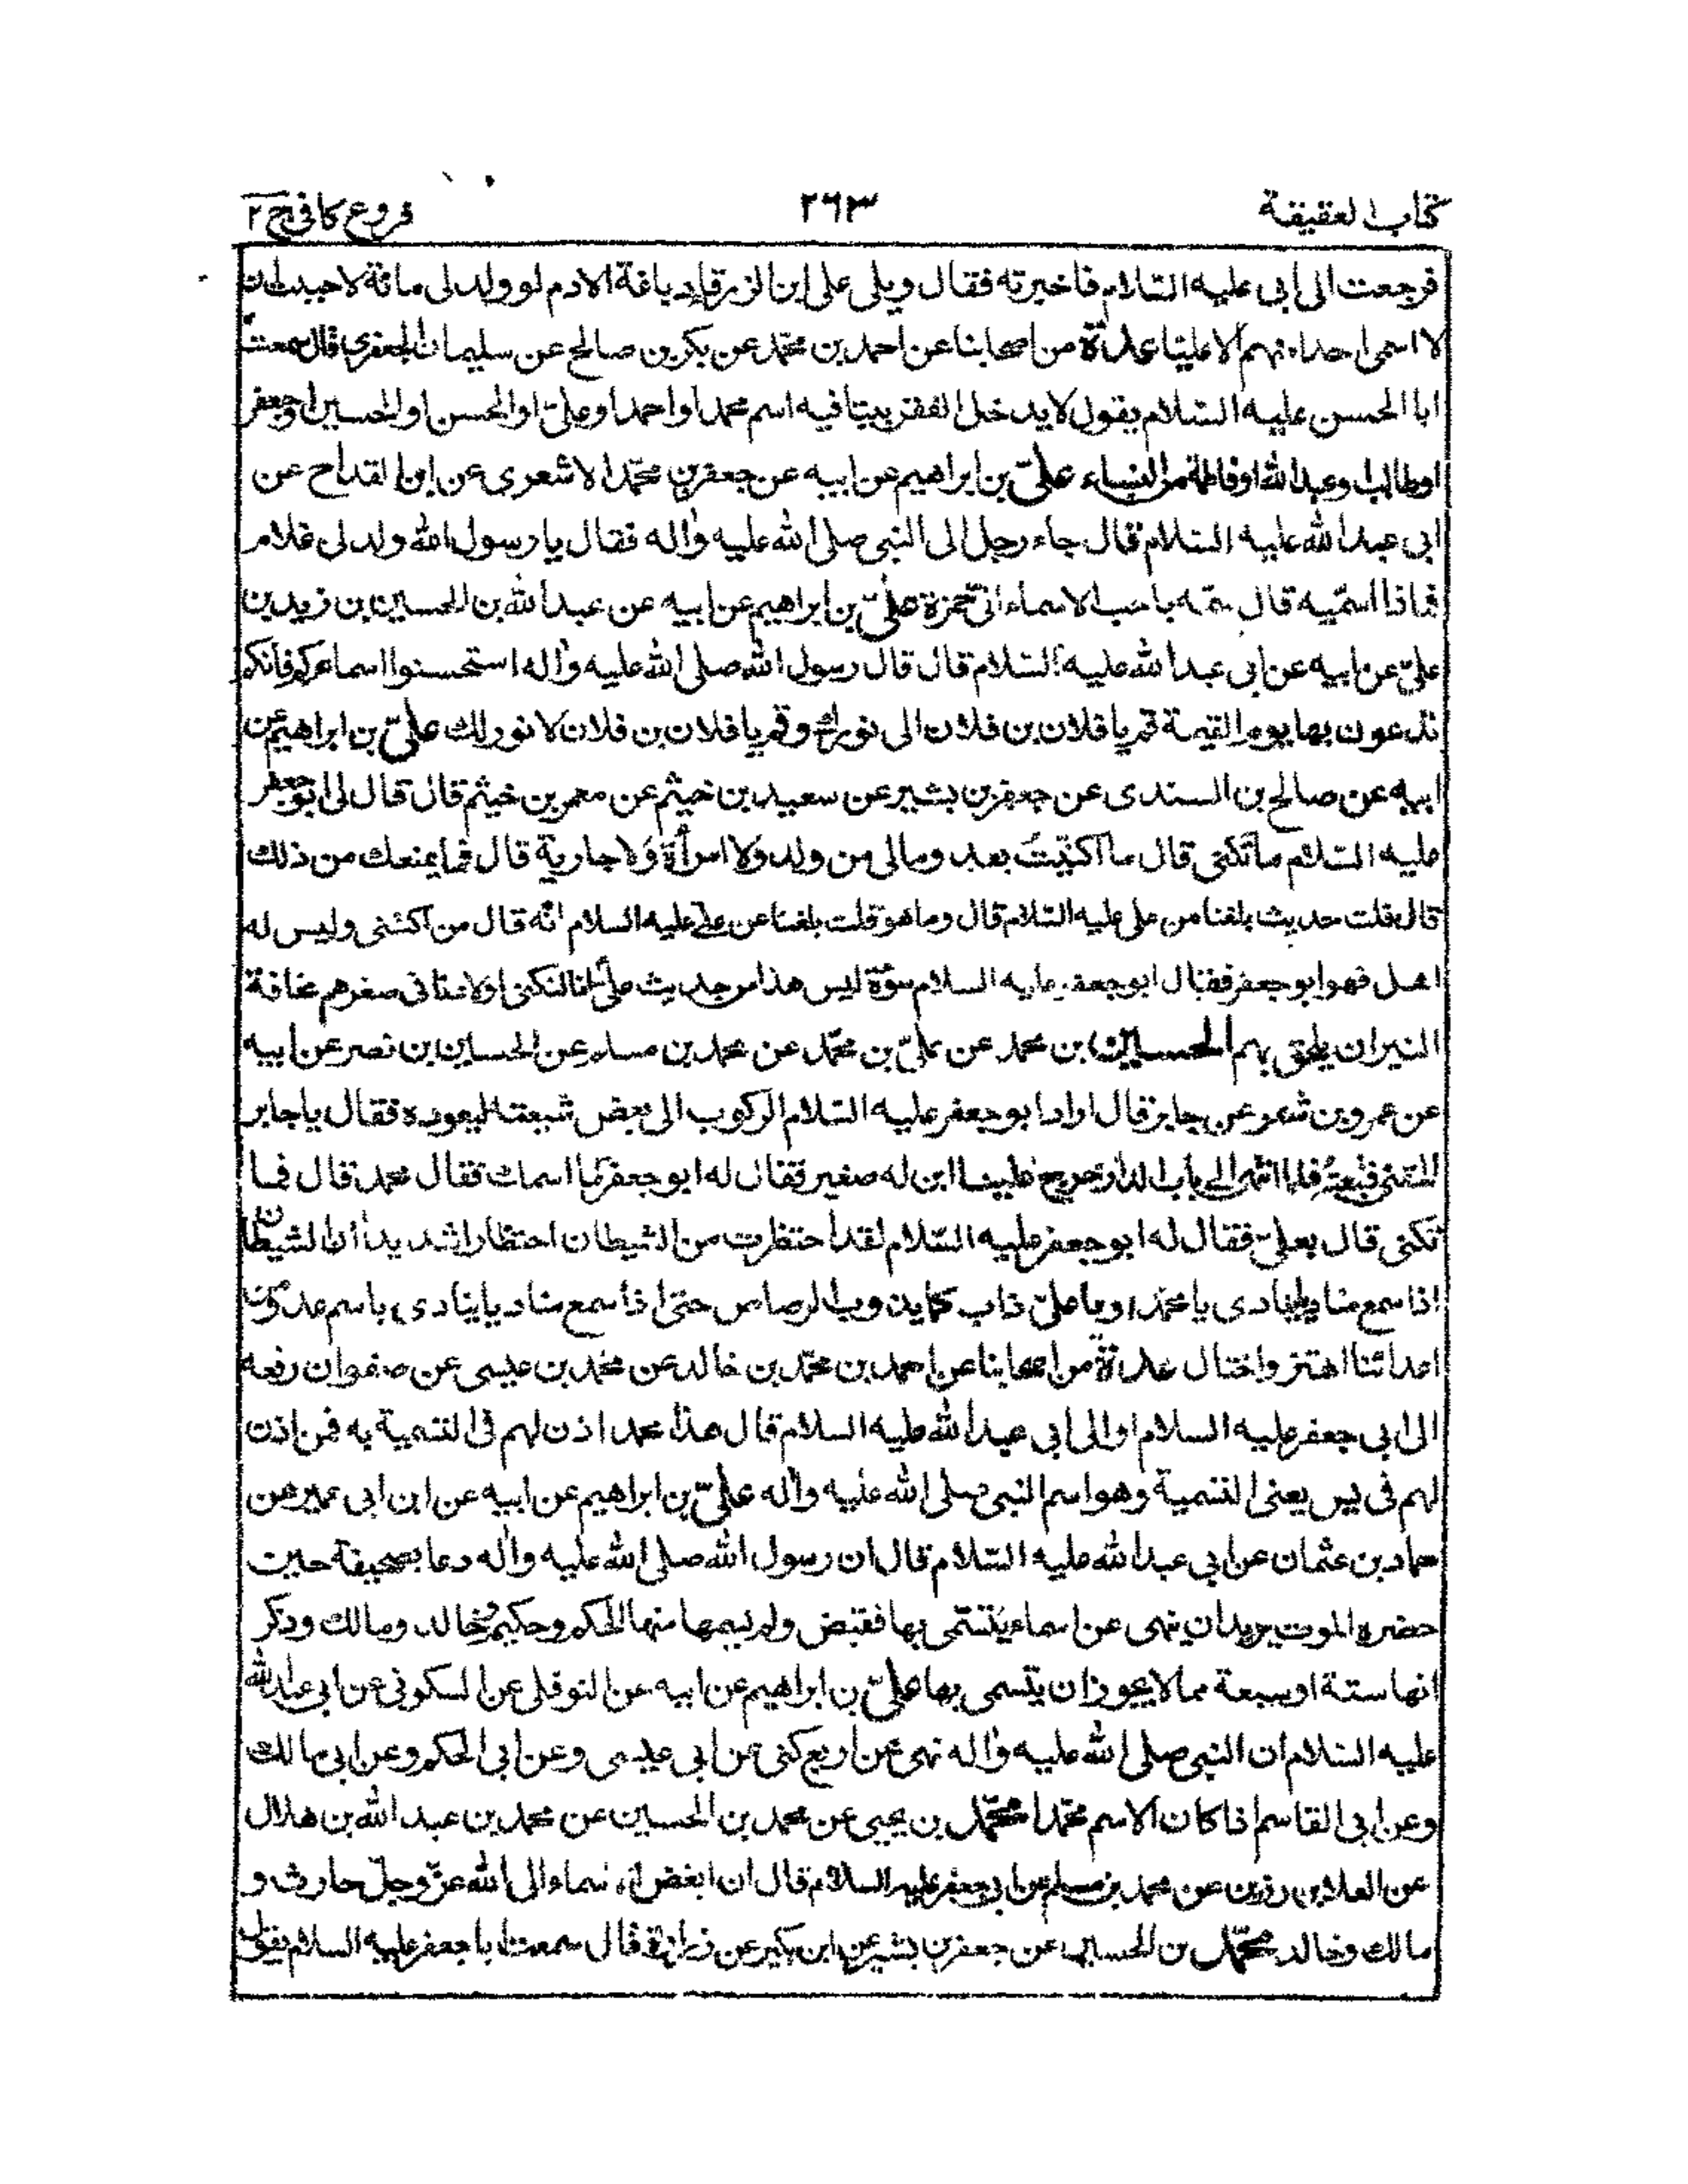 كتاب العقيقة ٢٦٣ فروع كافى ج ٢
فرجعت الى ابى عليه السّلام فاخبرته فقال ويلى على ابن الزرقاء دباغة الادم لو ولد لى مائة لاحببت ان
لا اسمى احدا منهم الا عليّا عدّة من اصحابنا عن احمد بن محمّد عن بكر بن صالح عن سليمان الجعفرى قال سمعت
ابا الحسن عليه السّلام يقول لا يدخل الفقر بيتا فيه اسم محمد او احمد او علىّ او الحسن او الحسين او جعفر
او طالب او عبد الله او فاطمة من النساء علىّ بن ابراهيم عن ابيه عن جعفر بن محمّد الاشعرى عن ابن القداح عن
ابى عبد الله عليه السّلام قال جاء رجل الى النبى صلى الله عليه واله فقال يا رسول الله ولد لى غلام
فماذا اسمّيه قال سمّه باحب الاسماء الىّ حمزة علىّ بن ابراهيم عن ابيه عن عبد الله بن الحسين بن زيد بن
علىّ عن ابيه عن ابى عبد الله عليه السّلام قال قال رسول الله صلى الله عليه واله استحسنوا اسماءكم فانكم
تدعون بها يوم القيمة قم يا فلان بن فلان الى نورك وقم يا فلان بن فلان لا نور لك علىّ بن ابراهيم عن
ابيه عن صالح بن السندى عن جعفر بن بشير عن سعيد بن خيثم عن معمر بن خيثم قال قال لى ابو جعفر
عليه السّلام ما تكنى قال ما اكتنيت بعد ومالى من ولد ولا امرأة ولا جارية قال فما يمنعك من ذلك
قال قلت حديث بلغنا من على عليه السّلام قال وما هو قلت بلغنا عن على عليه السلام انّه قال من اكتنى وليس له
اهل فهو ابو جعفر فقال ابو جعفر عليه السلام سوّة ليس هذا من حديث علىّ انا لنكنى اولادنا فى صغرهم مخافة
النبز ان يلحق بهم الحسين بن محمد عن علىّ بن محمّد عن محمد بن مسلم عن الحسين بن نصر عن ابيه
عن عمرو بن شمر عن جابر قال اراد ابو جعفر عليه السّلام الركوب الى بعض شيعته ليعوده فقال يا جابر
الحقنى فتبعته فلما انتهى الى باب الدار خرج علينا ابن له صغير فقال له ابو جعفر ما اسمك فقال محمد قال فما
تكنى قال بعلىّ فقال له ابو جعفر عليه السّلام لقد احتظرت من الشيطان احتظارا شديدا ان الشيطان
اذا سمع مناديا ينادى يا محمّد او يا علىّ ذاب كما يذوب الرصاص حتى اذا سمع مناديا ينادى باسم عدوّ من
اعدائنا اهتز واختال عدّة من اصحابنا عن احمد بن محمّد بن خالد عن محمّد بن عيسى عن صفوان رفعه
الى ابى جعفر عليه السلام او الى ابى عبد الله عليه السلام قال هذا محمد اذن لهم فى التسمية به فمن اذن
لهم فى يس يعنى التسمية وهو اسم النبى صلى الله عليه واله علىّ بن ابراهيم عن ابيه عن ابن ابى عمير عن
حماد بن عثمان عن ابى عبد الله عليه السّلام قال ان رسول الله صلى الله عليه واله دعا بصحيفة حين
حضره الموت يريد ان ينهى عن اسماء يتسمّى بها فقبض ولم يسمها منها الحكم وحكيم وخالد ومالك وذكر
انها ستة او سبعة مما لا يجوز ان يتسمى بها علىّ بن ابراهيم عن ابيه عن النوفلى عن السكونى عن ابى عبد الله
عليه السّلام ان النبى صلى الله عليه واله نهى عن اربع كنى عن ابى عيسى وعن ابى الحكم وعن ابى مالك
وعن ابى القاسم اذا كان الاسم محمّدا محمّد بن يحيى عن محمد بن الحسين عن محمد بن عبد الله بن هلال
عن العلا بن رزين عن محمد بن مسلم عن ابى جعفر عليه السلام قال ان ابغض الاسماء الى الله عزّ وجلّ حارث و
مالك وخالد محمّد بن الحسين عن جعفر بن بشير عن ابن بكير عن زرارة قال سمعت ابا جعفر عليه السلام يقول